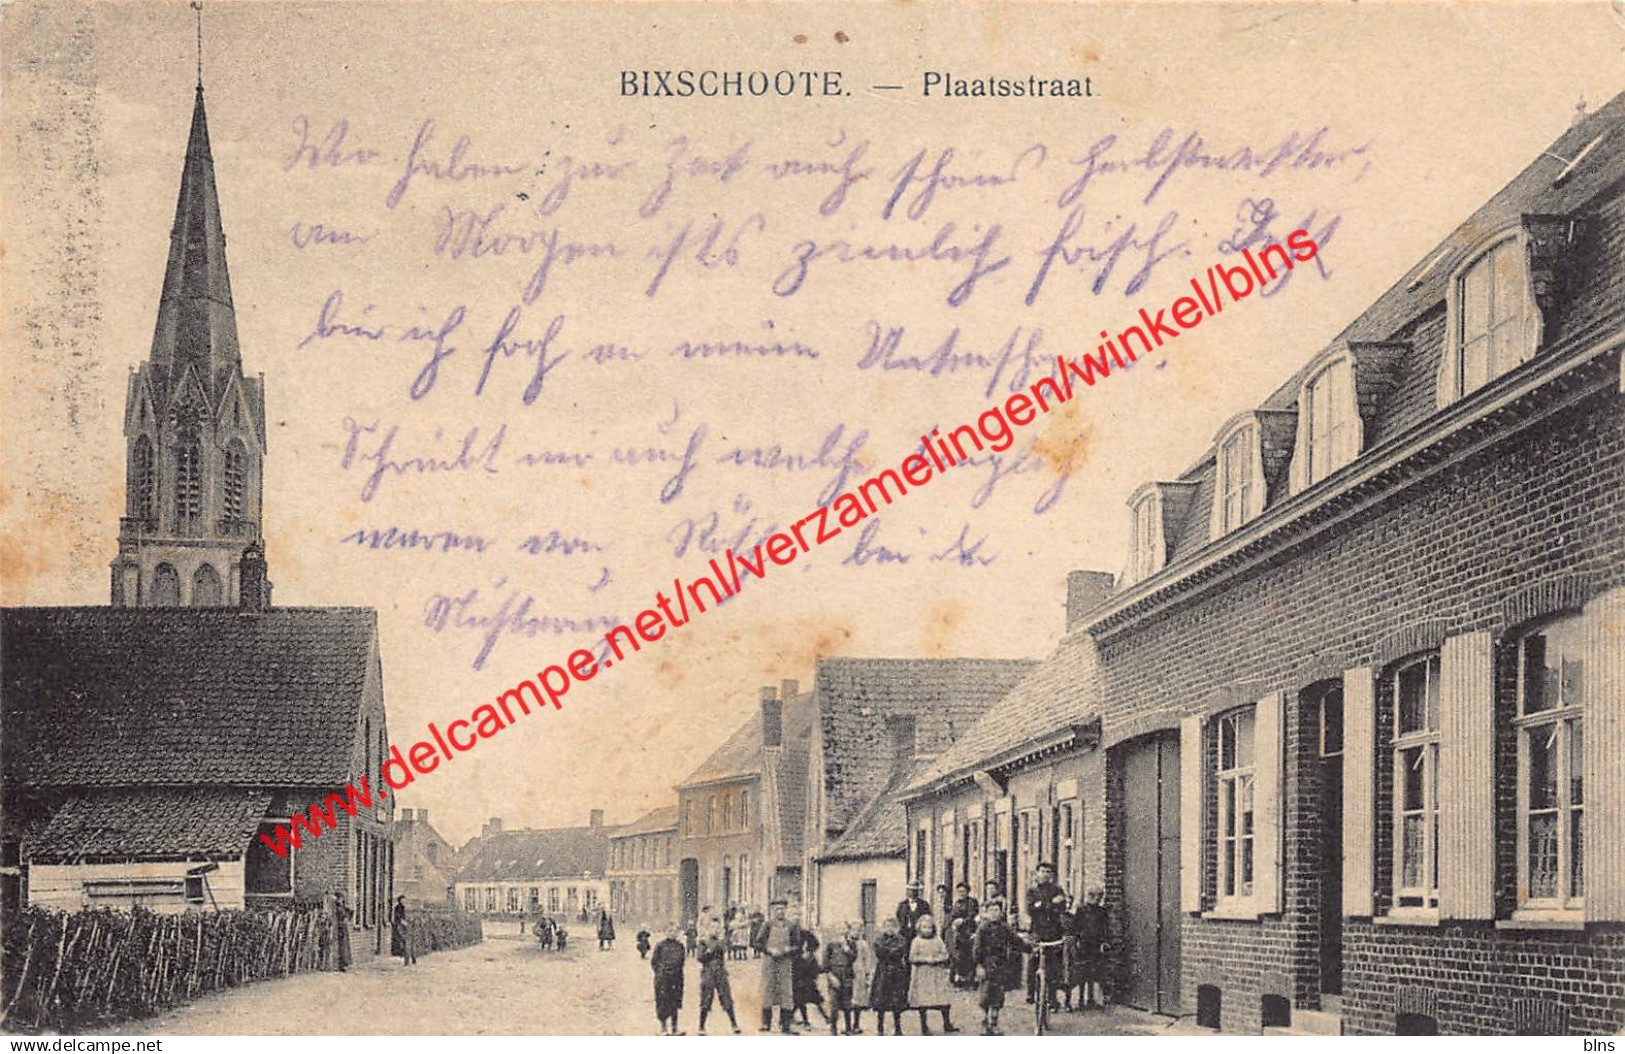 BIXSCHOOTE. — Plaatsstraat.
Wir haben zur Zeit auch schönes Herbstwetter,
am Morgen ists ziemlich frisch. Jetzt
bin ich froh an meinen
Schreibt mir auch welche
waren von bei der
Musterung.
www.delcampe.net/nl/verzamelingen/winkel/blns
delcampe.net
blns